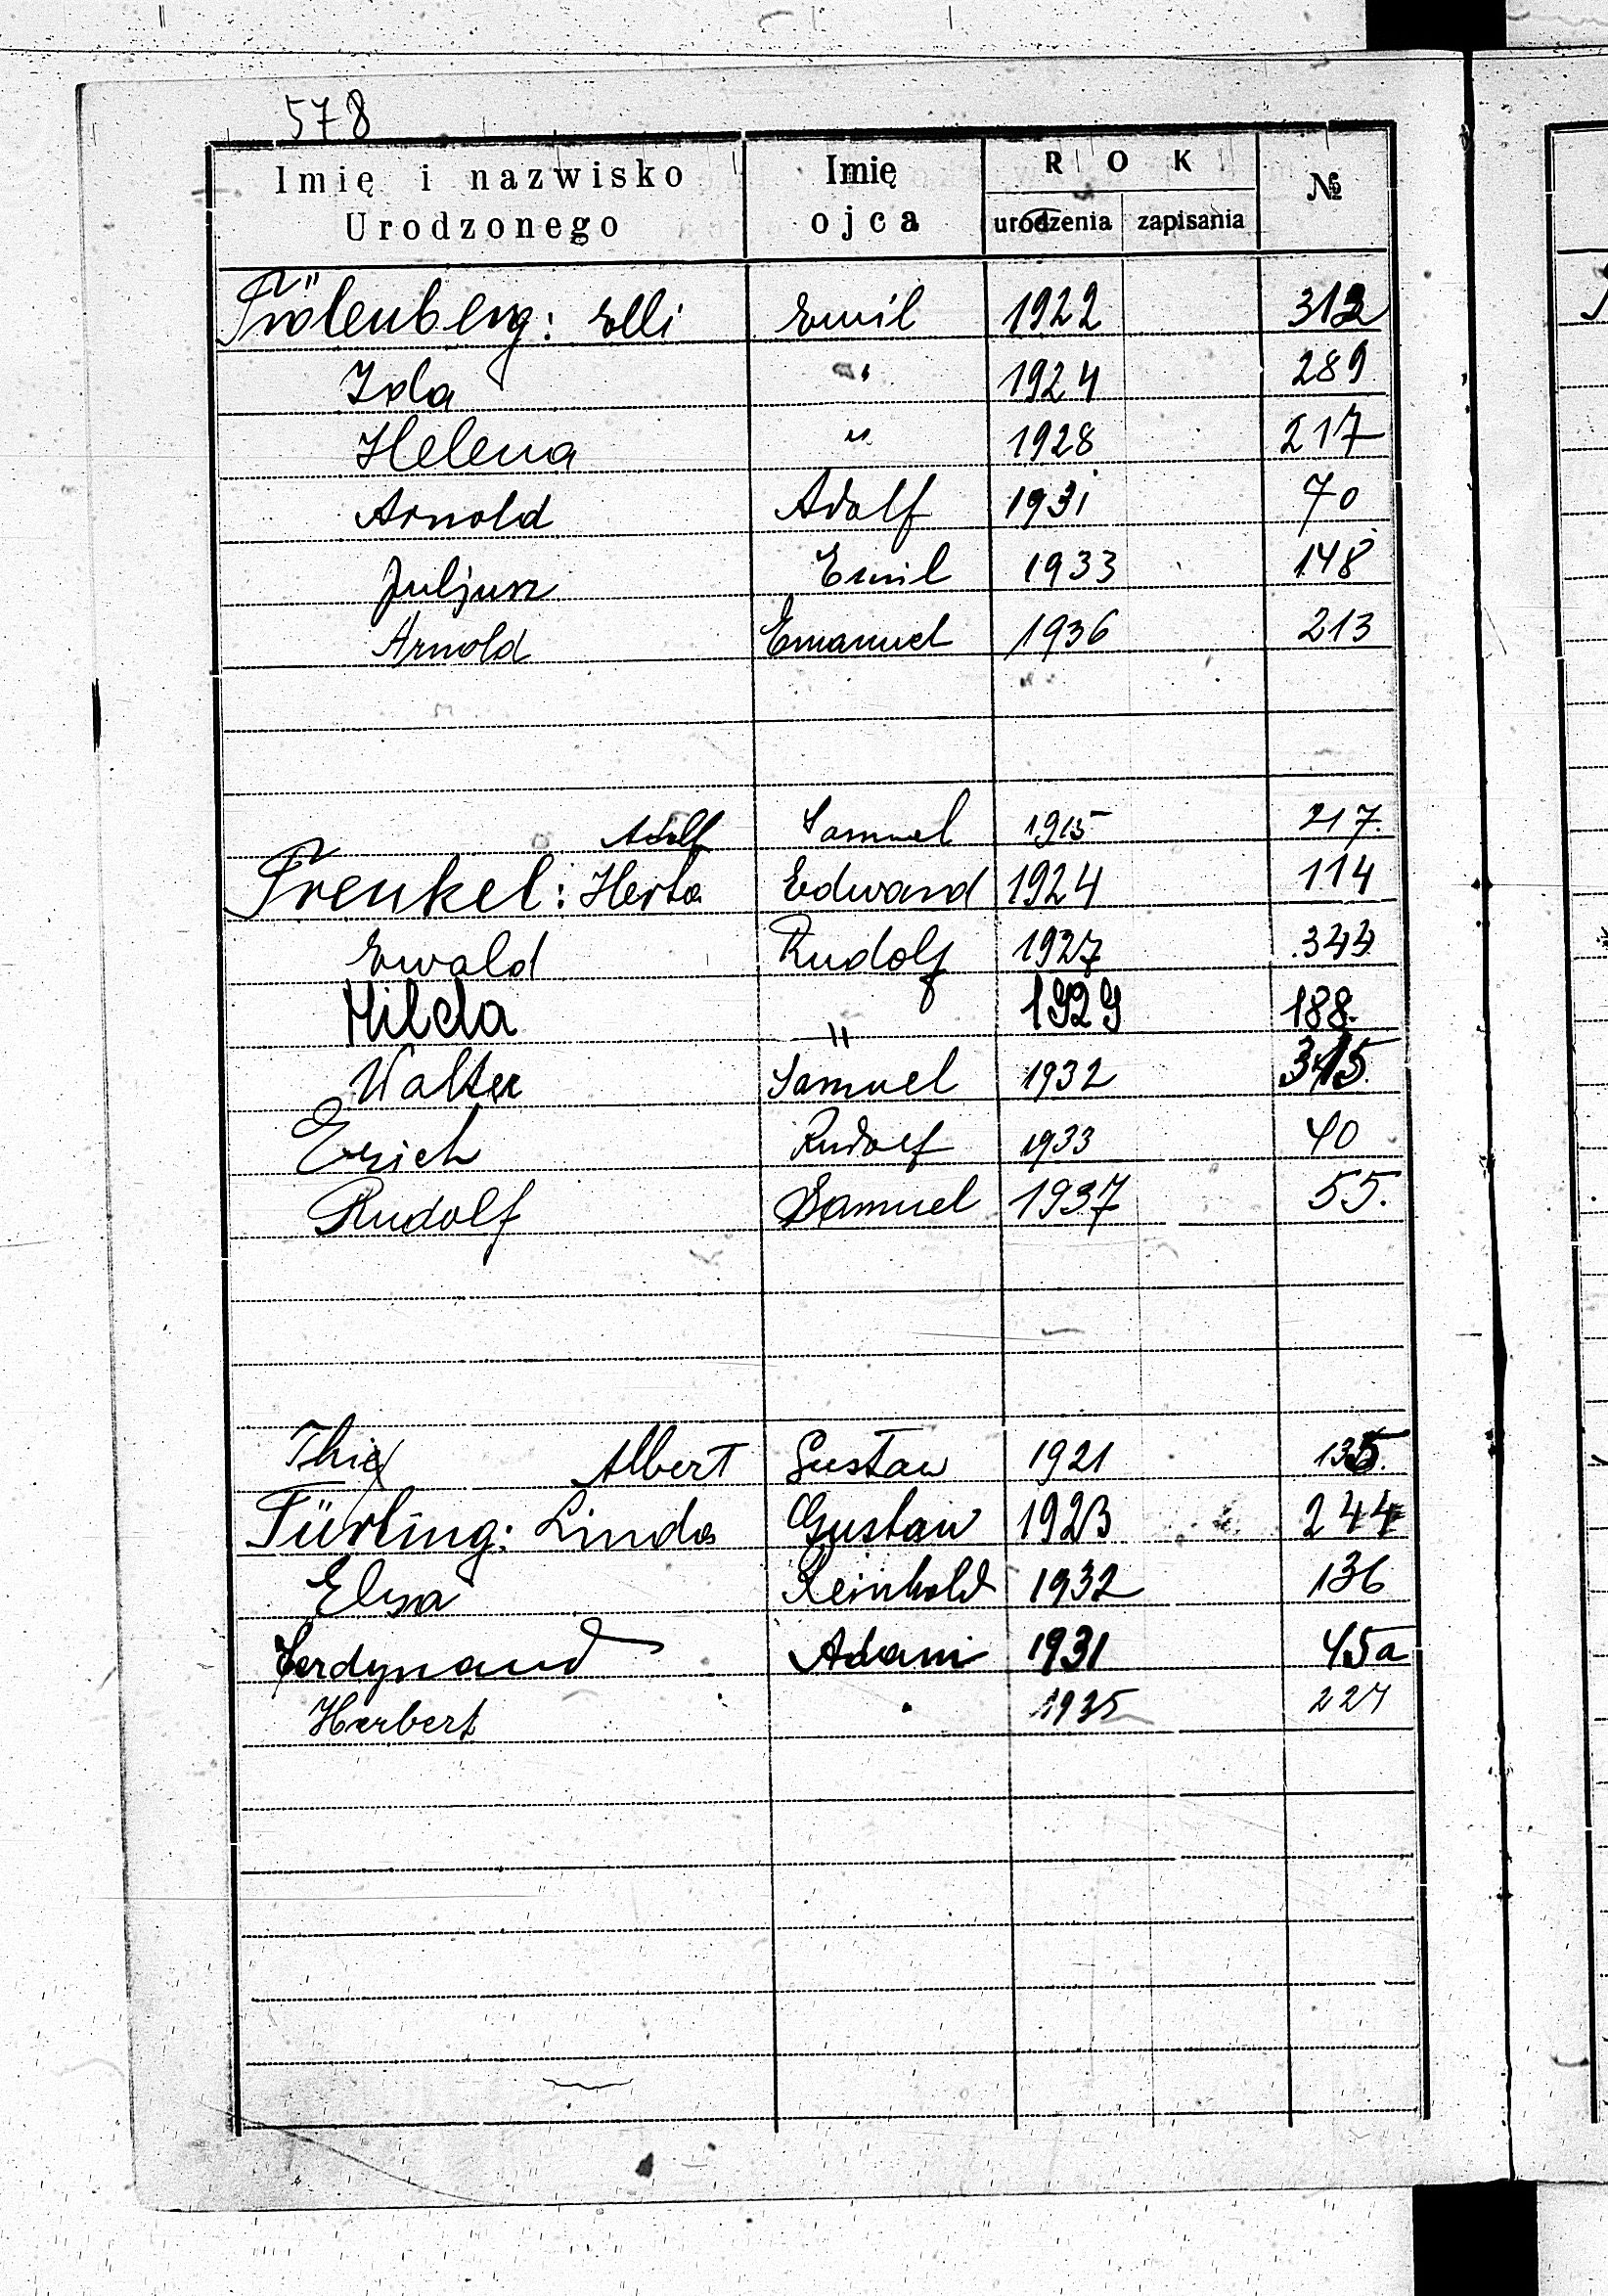 578
Imię i nazwisko Urodzonego Imię ojca ROK urodzenia zapisania №
Trölenberg: Elli Emil 1922 312
Ida " 1924 289
Helena " 1928 217
Arnold Adolf 1931 70
Juljusz Emil 1933 148
Arnold Emanuel 1936 213
Adolf Samuel 1915 217.
Trenkel: Herta Edward 1924 114
Ewald Rudolf 1927 344
Hilda " 1929 188.
Walter Samuel 1932
Erich Rudolf 1933 40
Rudolf Samuel 1937 55.
Albert Gustaw 1921
Türling: Linda Gustaw 1923 244
Elsa Reinhold 1932 136
Ferdynand Adam 1931 45a
Herbert 1935 227